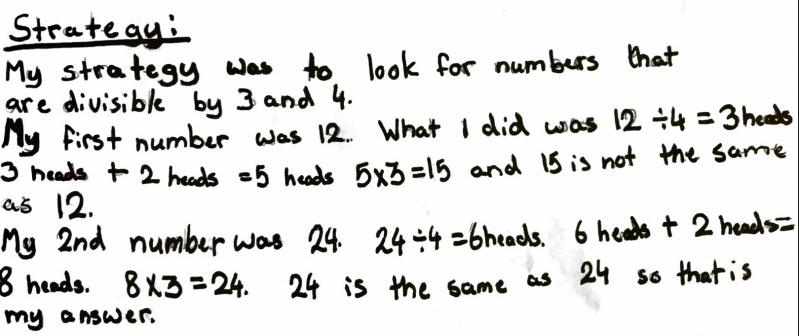 Strategy:
My strategy was to look for numbers that
are divisible by 3 and 4.
My first number was 12. What I did was 12 ÷4 = 3heads
3 heads + 2 heads =5 heads 5x3=15 and 15 is not the same
as 12.
My 2nd number was 24. 24÷4=6heads. 6 heads + 2 heads=
8 heads. 8x3=24. 24 is the same as 24 so that is
my answer.